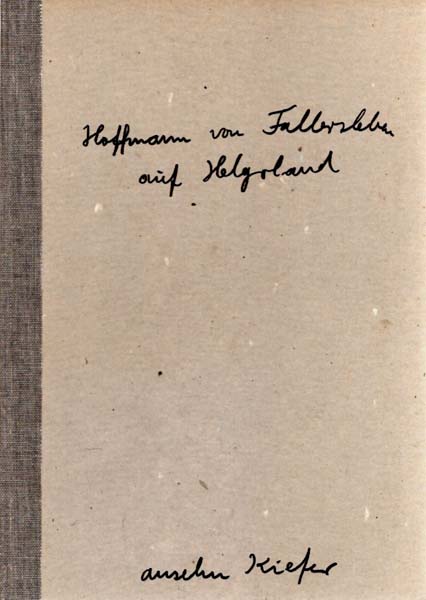 Hoffmann von Fallersleben
auf Helgoland
anselm Kiefer